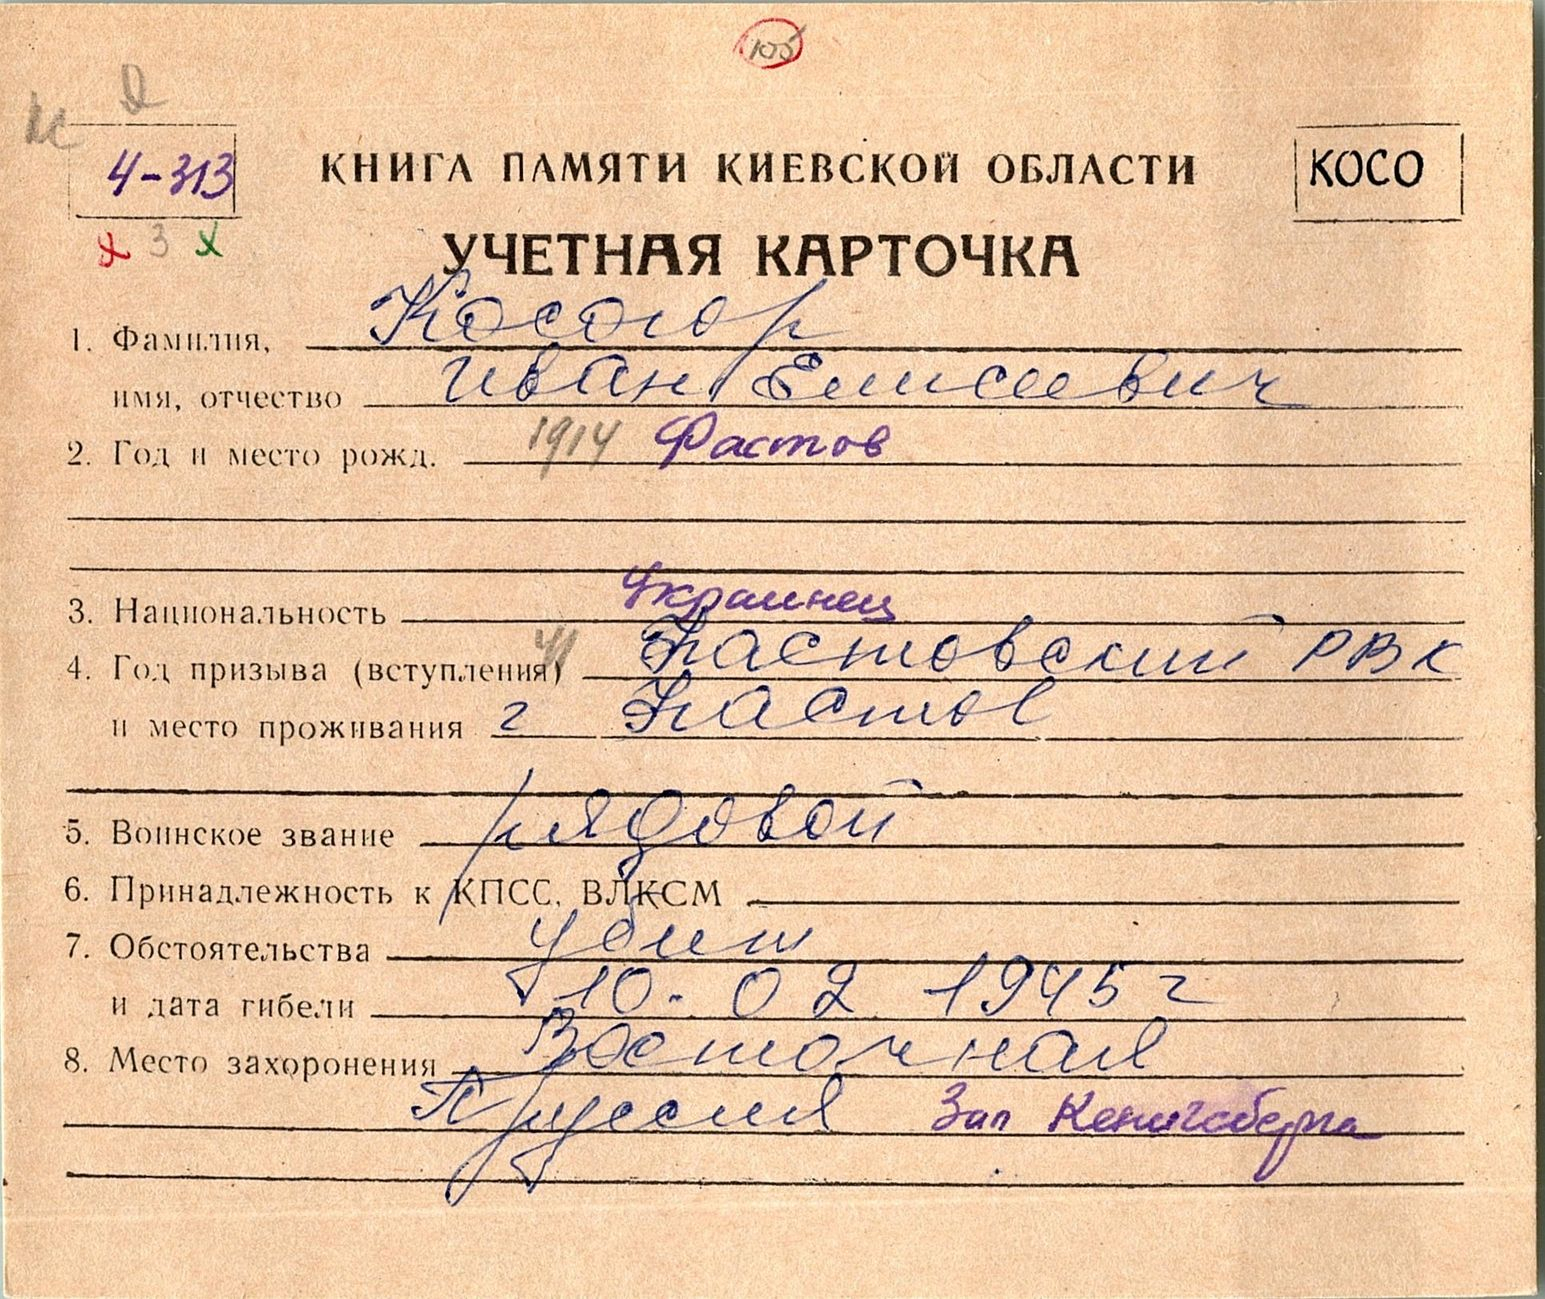 105
4-313
КНИГА ПАМЯТИ КИЕВСКОЙ ОБЛАСТИ
КОСО
х 3 х
УЧЕТНАЯ КАРТОЧКА
1. Фамилия, Косогор
имя, отчество Иван Елисеевич
2. Год и место рожд. 1914 Фастов
3. Национальность Украинец
4. Год призыва (вступления) 41 Фастовский РВК
и место проживания г Фастов
5. Воинское звание рядовой
6. Принадлежность к КПСС, ВЛКСМ
7. Обстоятельства убит
и дата гибели 10. 02 1945 г
8. Место захоронения Восточная
Пруссия Зап Кенигсберга